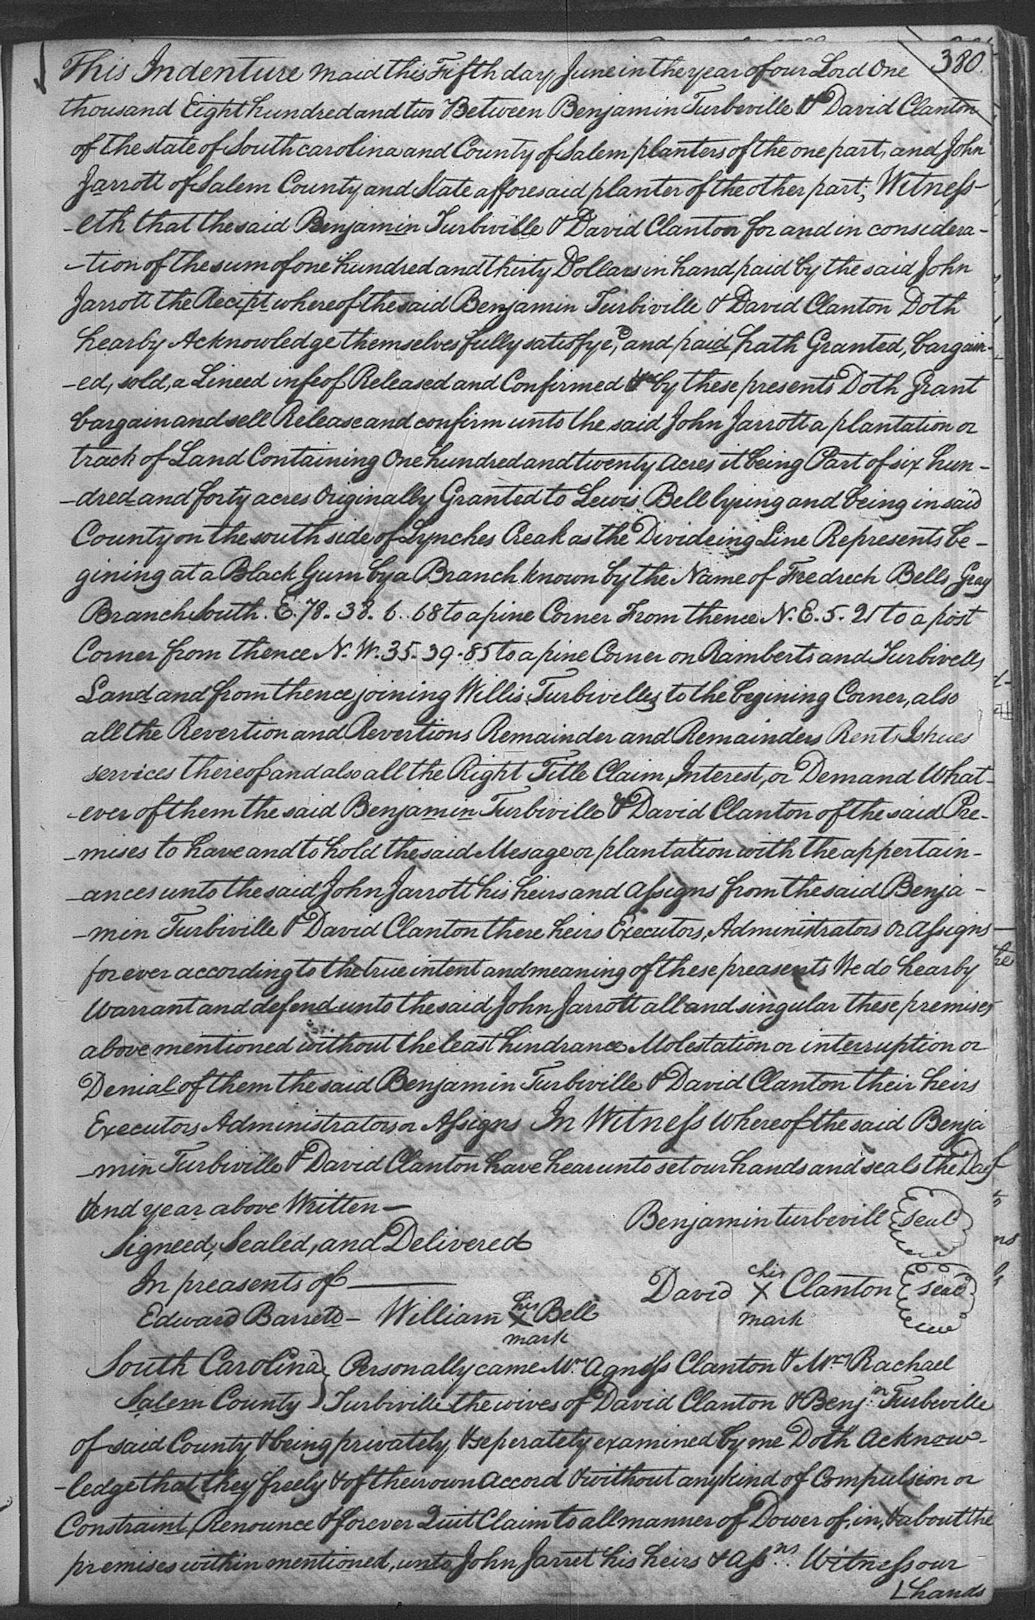 380.
This Indenture Maid this Fifth day June in the year of our Lord One
thousand Eight hundred and two Between Benjamin Turbeville & David Clanton
of the state of South carolina and County of Salem planters of the one part, and John
Jarrott of Salem County and State afforesaid planter of the other part, Witness-
-eth that the said Benjamin Turbiville & David Clanton for and in considera-
-tion of the sum of one hundred and thirty Dollars in hand paid by the said John
Jarrott the Recipt whereof the said Benjamin Turbiville & David Clanton Doth
hearby Acknowledge themselves fully satisfyed, and paid hath Granted, bargain-
-ed, sold, a Lineed infeof Released and Confirmed & by these presents Doth Grant
bargain and sell Release and confirm unto the said John Jarrott a plantation or
track of Land Containing One hundred and twenty Acres it being Part of six hun-
-dred and forty acres Originally Granted to Lewis Bell lying and being in said
County on the south side of Lynches Creak as the Divideing Line Represents be-
gining at a Black Gum by a Branch known by the Name of Fredrech Bells Gray
Branch South. E. 78. 38. 6. 68 to a pine Corner From thence N. E. 5. 25 to a post
Corner from thence N. W. 35. 39. 85 to a pine Corner on Ramberts and Turbivells
Land and from thence joining Willis Turbivilles to the begining Corner, also
all the Revertion and Revertions Remainder and Remainders Rents Ishues
services thereof and also all the Right Title Claim, Interest, or Demand What-
-ever of them the said Benjamin Turbiville & David Clanton of the said Pre-
-mises to have and to hold the said Mesage or plantation with the appertain-
-ances unto the said John Jarrott his heirs and assigns from the said Benja-
-min Turbiville & David Clanton there heirs Executors, Administrators or assigns
for ever according to the true intent and meaning of these preasents We do hearby
Warrant and defend unto the said John Jarrott all and singular these premises
above mentioned without the least hindrance Molestation or interruption or
Denial of them the said Benjamin Turbiville & David Clanton their heirs
Executors Administrators or Assigns In Witness whereof the said Benja
-min Turbiville & David Clanton have hearunto set our hands and seals the Day
And year above Written—
Benjamin turbevill seal
Signeed, Sealed, and Delivered
In preasents of
David his X Clanton seal
mark
Edward Barrett – William his X Bell
mark
South Carolina } Personally came Mrs Agness Clanton & Mrs Rachael
Salem County } Turbiville the wives of David Clanton & Benjn Turbeville
of said County & being privately & seperately examined by me Doth Acknow-
-ledge that they freely & of their own accord & without any kind of Compulsion or
Constraint, Renounce & forever Quit Claim to all manner of Dower of, in, & about the
premises within mentioned, unto John Jarret his heirs & assns Witness our
hands